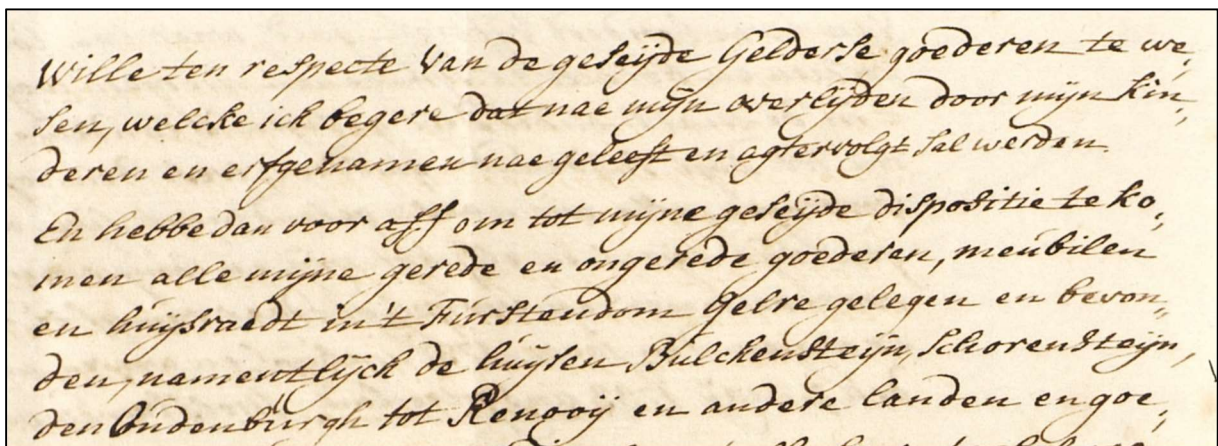 Wille ten respecte van de geseijde Gelderse goederen te we,
sen, welcke ick begere dat nae mijn overlijden door mijn kin,
deren en erfgenamen nae geleeft en agtervolgt sal werden.
En hebbe dan voor aff om tot mijne geseijde dispositie te ko,
men alle mijne gerede en ongerede goederen, meubilen
en huijsraedt in't Furstendom Gelre gelegen en bevon,
den, namentlijck de huijsen Bulckensteijn, Schorensteijn,
den Oudenburgh tot Renooij en andere landen en goe,